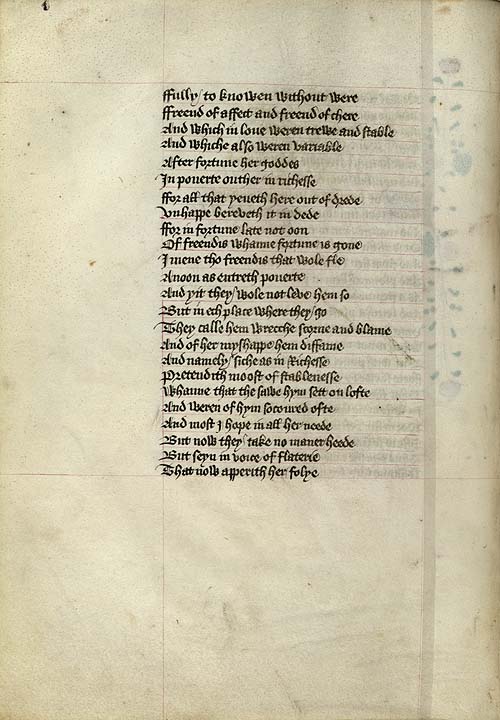 ffully / to knowen without were
ffreend of affect and freend of chere
And which in loue weren trewe and stable
And whiche also weren variable
After fortune her goddes
In pouerte outher in richesse
ffor all that yeueth here out of drede
Vnhappe bereveth it in dede
ffor in fortune late not oon
Of freendis whanne fortune is gone
I mene tho freendis that wole fle
Anoon as entreth pouerte
And yit they / wole not leve hem so
But in ech place where they / go
They calle hem wrecche scorne and blame
And of her myshappe hem diffame
And namely / siche as in Richesse
Pretendith moost of stablenesse
Whanne that they sawe hym sett on lofte
And weren of hym socoured ofte
And most I hope in all her neede
But now they / take no maner heede
But seyn in voice of flaterie
That now apperith her folye